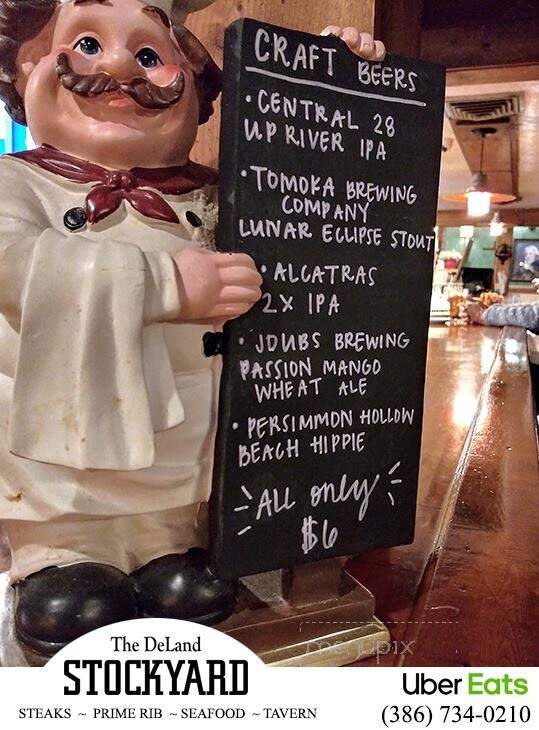 CRAFT BEERS
• CENTRAL 28
UP RIVER IPA
• TOMOKA BREWING
COMPANY
LUNAR ECLIPSE STOUT
• ALCATRAS
2X IPA
• JDUBS BREWING
PASSION MANGO
WHEAT ALE
• PERSIMMON HOLLOW
BEACH HIPPIE
ALL only
$6
menupix
The DeLand
STOCKYARD
STEAKS ~ PRIME RIB ~ SEAFOOD ~ TAVERN
Uber Eats
(386) 734-0210